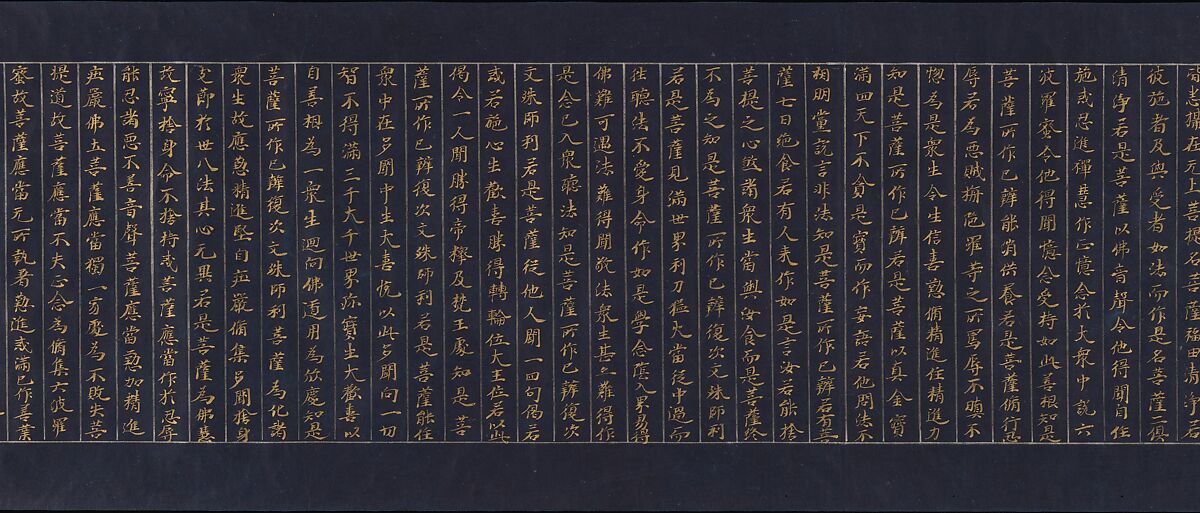 彼施者及與受者如法而作是名菩薩二俱
清淨若是菩薩以佛音聲令他得聞自住
施戒忍進禪慧作正憶念於大衆中說六
波羅蜜令他得聞憶念受持如此善根知是
菩薩所作已辦能消供養若是菩薩脩行忍
辱若為惡賊旃陁羅等之所罵辱不瞋不
惱為是衆生令生信善懃脩精進住精進力
知是菩薩所作已辦若是菩薩以真金寶
滿四天下不貪是寶而作妄語若他問法不
朔明黨說言非法知是菩薩所作已辦若有菩
薩七日絶食若有人来作如是言汝若能捨
菩提之心煞諸衆生當與汝食而是菩薩終
不為之知是菩薩所作已辦復次文殊師利
若是菩薩見滿世界利刀猛火當從中過而
徃聽法不愛身命作如是學念陰入界易得
佛難可遇法難得聞敬法衆生甚亦難得作
是念已入衆聽法知是菩薩所作已辦復次
文殊師利若是菩薩從他人聞一四句偈若
戒若施心生歡喜勝得轉輪位大王位若以此
偈令一人聞勝得帝釋及梵王處知是菩
薩所作已辦復次文殊師利若是菩薩能住
衆中在多聞中生大喜悅以此多聞向一切
智不得滿三千大千世界珎寶生大歡喜以
自善根為一衆生迴向佛道用為依處知是
菩薩所作已辦復次文殊師利菩薩為化諸
衆生故應懃精進堅自莊嚴脩集多聞捨身
支節於世八法其心无異若是菩薩為佛慧
故寧捨身命不捨持戒菩薩應當作於忍辱
能忍諸惡不善音聲菩薩應當懃加精進
莊嚴佛土菩薩應當獨一方處為不敗失菩
提道故菩薩應當不失正念為脩集六波羅
蜜故菩薩應當无所執著懃進戒滿已作善業